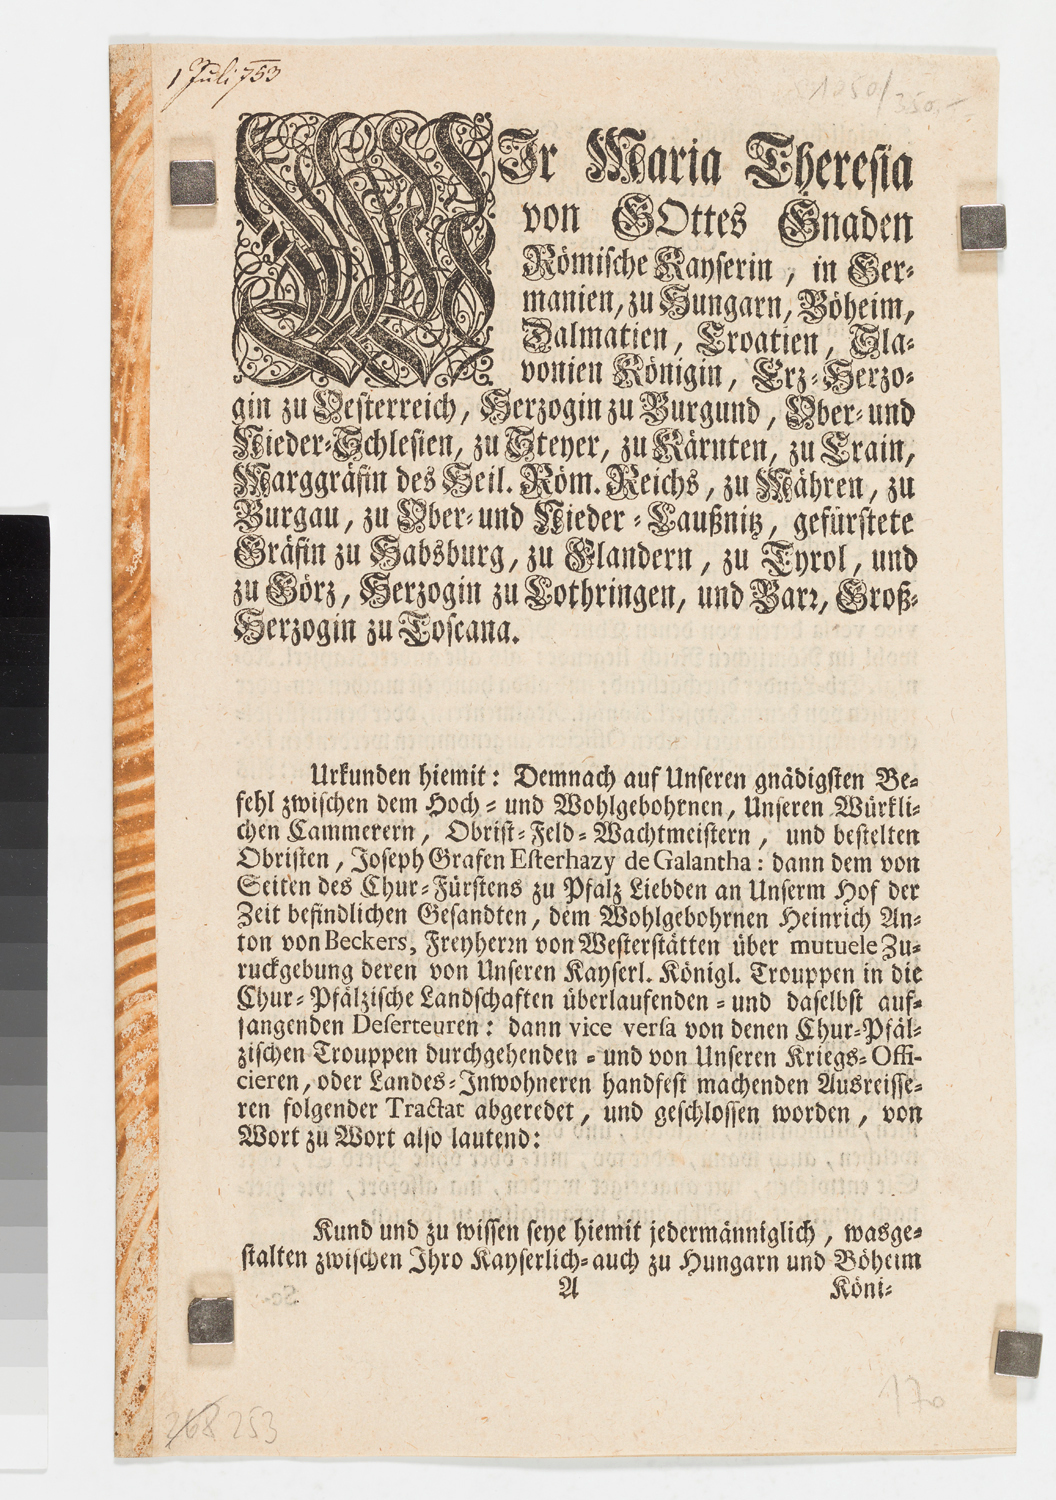 1 Juli 753
WIr Maria Theresia
von GOttes Gnaden
Römische Kayserin, in Ger-
manien, zu Hungarn, Böheim,
Dalmatien, Croatien, Sla-
vonien Königin, Ertz-Hertzo-
gin zu Oesterreich, Herzogin zu Burgund, Ober- und
Nieder-Schlesien, zu Steyer, zu Kärnten, zu Crain,
Marggräfin des Heil. Röm. Reichs, zu Mähren, zu
Burgau, zu Ober- und Nieder-Laußnitz, gefürstete
Gräfin zu Habsburg, zu Flandern, zu Tyrol, und
zu Görz, Herzogin zu Lothringen, und Barr, Groß-
Herzogin zu Toscana.
Urkunden hiemit: Demnach auf Unseren gnädigsten Be-
fehl zwischen dem Hoch- und Wohlgebohrnen, Unseren Würkli-
chen Cammerern, Obrist-Feld-Wachtmeistern, und bestelten
Obristen, Joseph Grafen Esterhazy de Galantha: dann dem von
Seiten des Chur-Fürstens zu Pfalz Liebden an Unserm Hof der
Zeit befindlichen Gesandten, dem Wohlgebohrnen Heinrich An-
ton von Beckers, Freyherrn von Westerstätten über mutuele Zu-
ruckgebung deren von Unseren Kayserl. Königl. Trouppen in die
Chur-Pfälzische Landschaften überlaufenden- und daselbst auf-
fangenden Deserteuren: dann vice versa von denen Chur-Pfäl-
zischen Trouppen durchgehenden- und von Unseren Kriegs-Offi-
cieren, oder Landes-Inwohneren handfest machenden Ausreisse-
ren folgender Tractat abgeredet, und geschlossen worden, von
Wort zu Wort also lautend:
Kund und zu wissen seye hiemit jedermänniglich, wasge-
stalten zwischen Ihro Kayserlich- auch zu Hungarn und Böheim
A Köni-
268 253
170